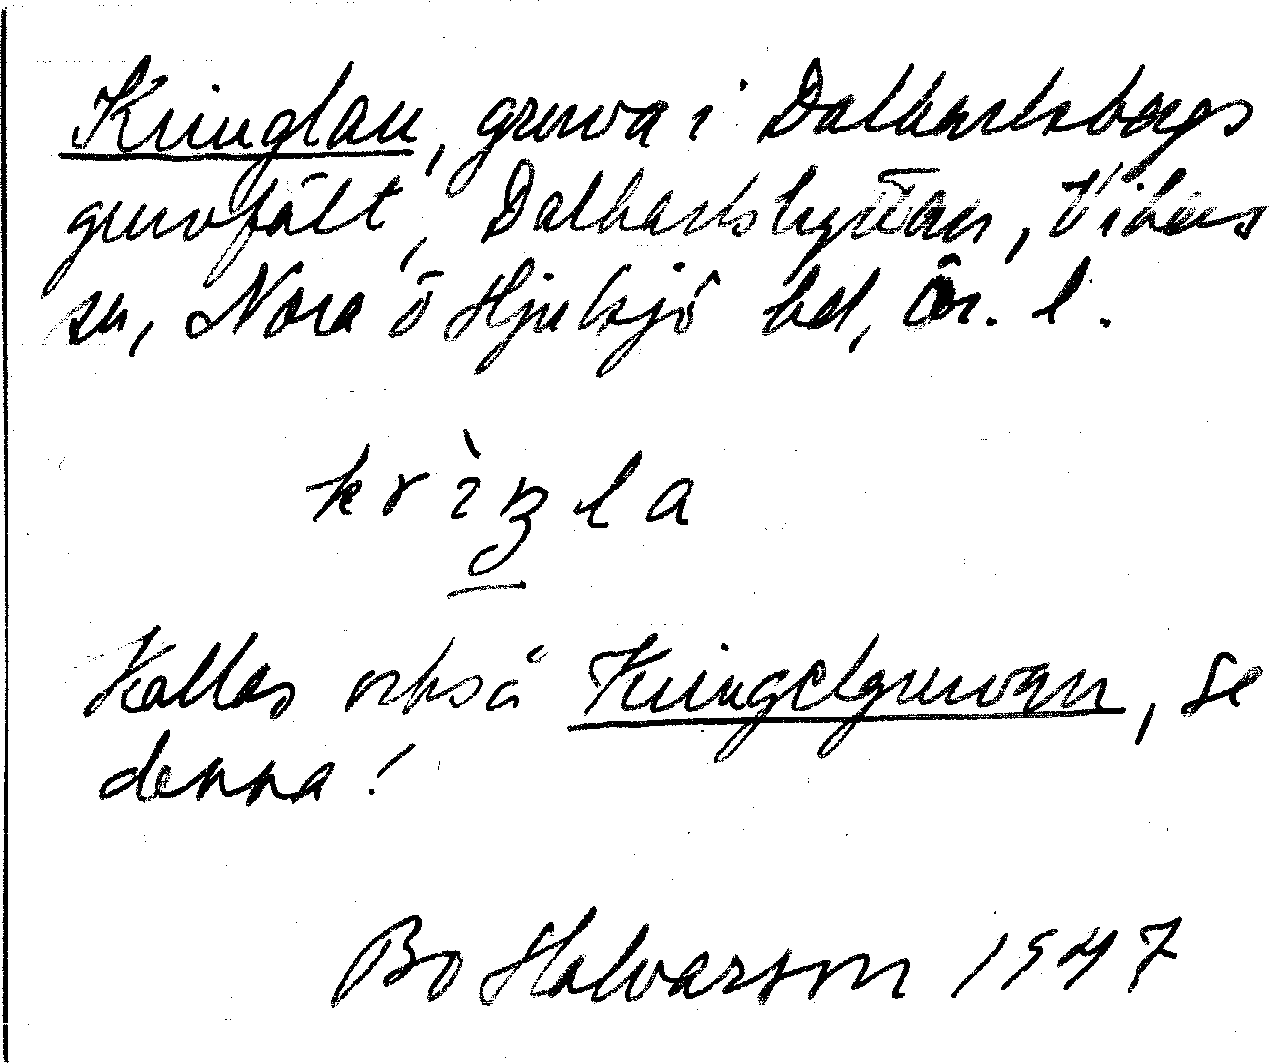 Kringlan, gruva i Dalkarlsbergs
gruvfält, Dalkarlshyttan, Vikers
sn, Nora o Hjulsjö hd, Ör. l.
krìŋla
Kallas också Kringelgruvan, se
denna!
Bo Halvarson 1947